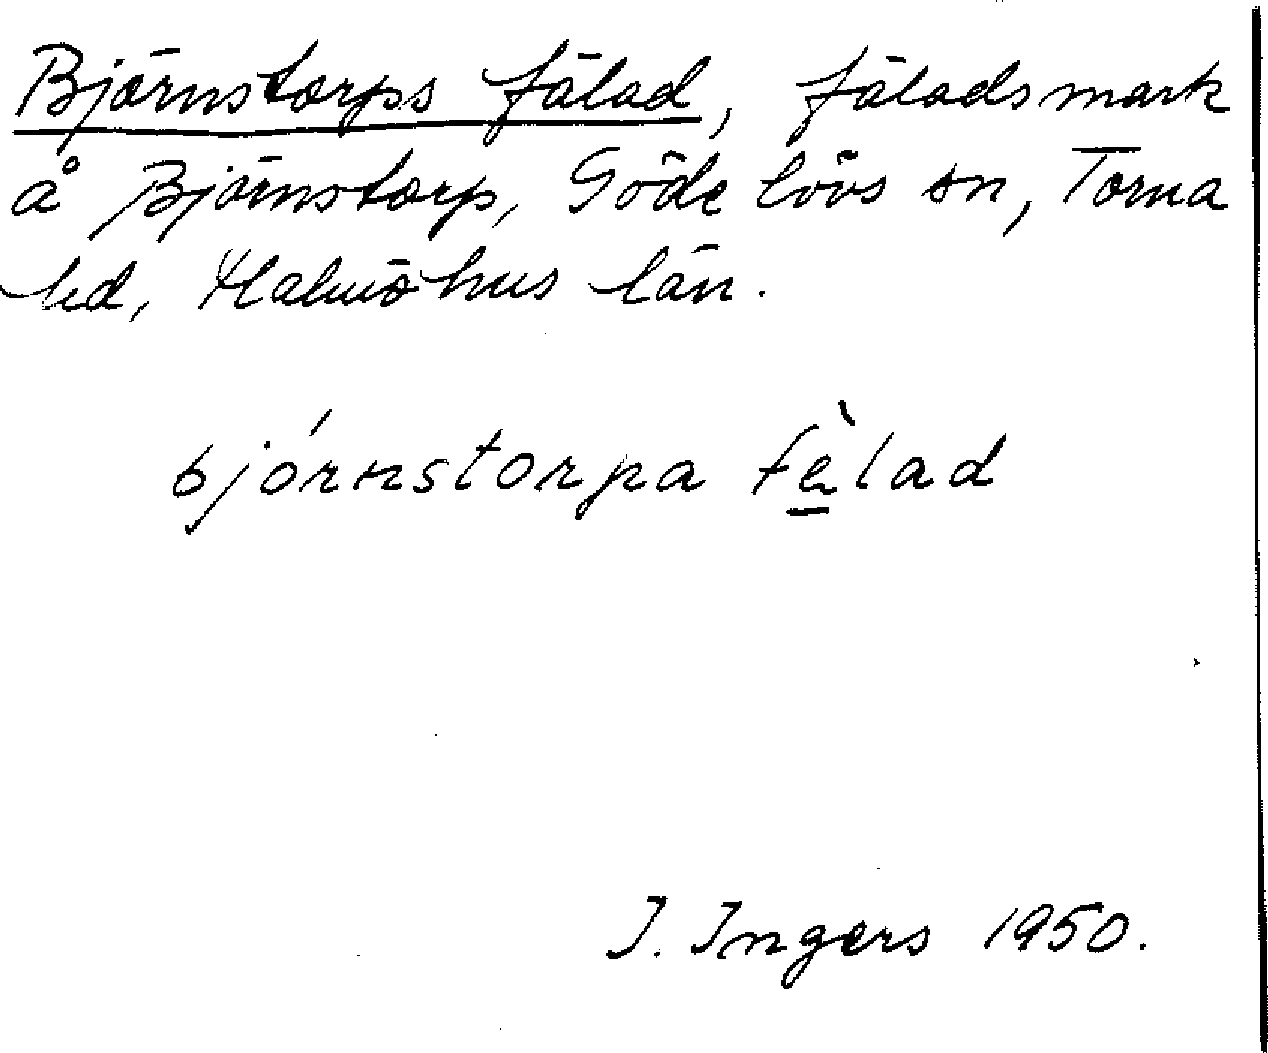 Björnstorps fälad, fäladsmark
å Björnstorp, Gödelövs sn, Torna
hd, Malmöhus län.
bjórnstorpa fèlad
I. Ingers 1950.